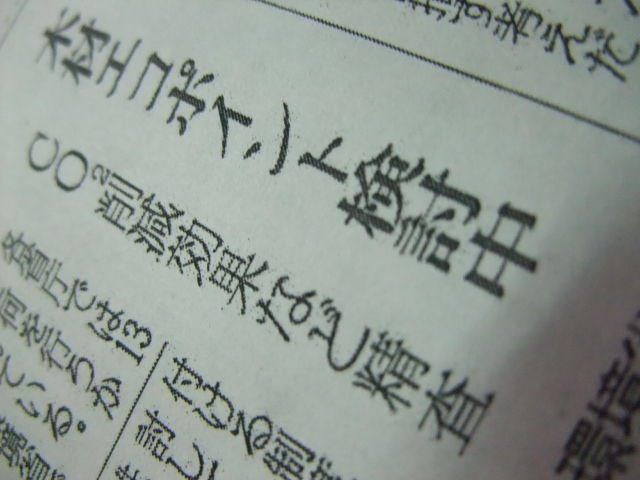 指す考えだ
木材エコポイント検討中
CO2削減効果など精査
各省庁では13
を行うか
ている。
付ける制
討し
環境